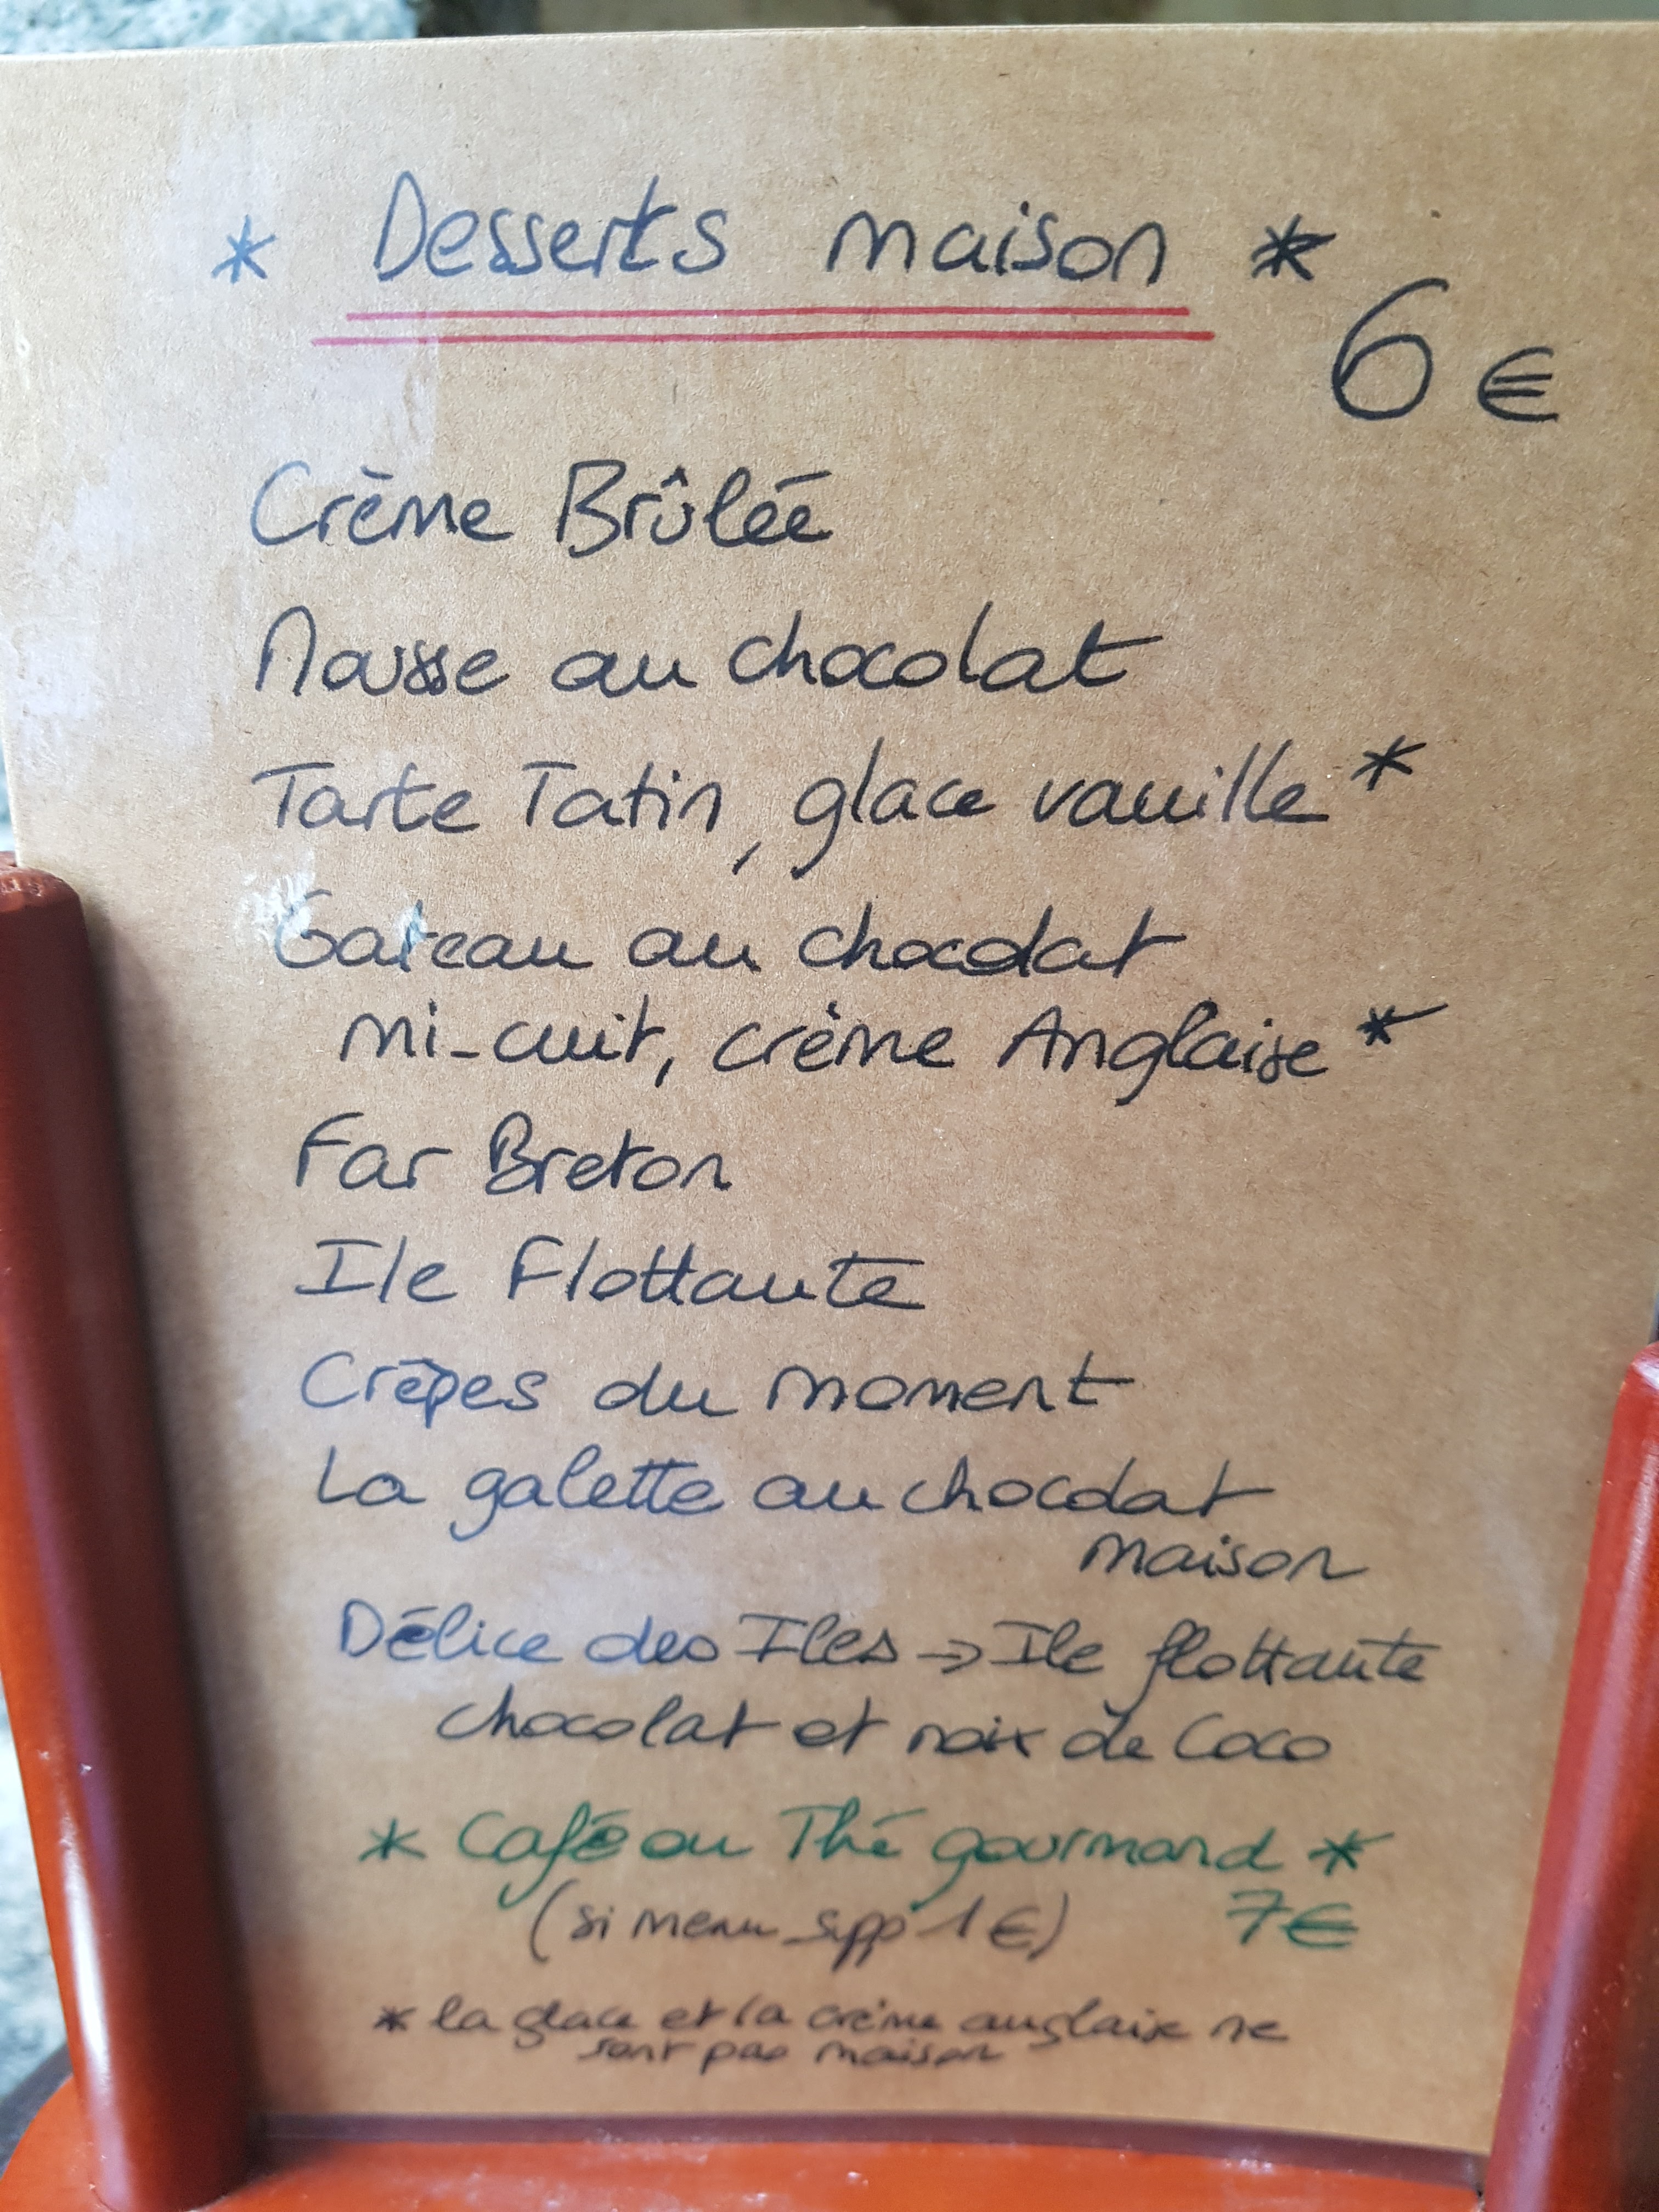 * Desserts maison *
6 €
Crème Brûlée
Mousse au chocolat
Tarte Tatin, glace vanille *
Gateau au chocolat
mi-cuit, crème Anglaise *
Far Breton
Ile Flottante
Crêpes du moment
La galette au chocolat
maison
Délice des Iles → Ile flottante
chocolat et noix de Coco
* Café ou Thé gourmand *
(si menu supp 1 €) 7 €
* la glace et la crème anglaise ne
sont pas maison